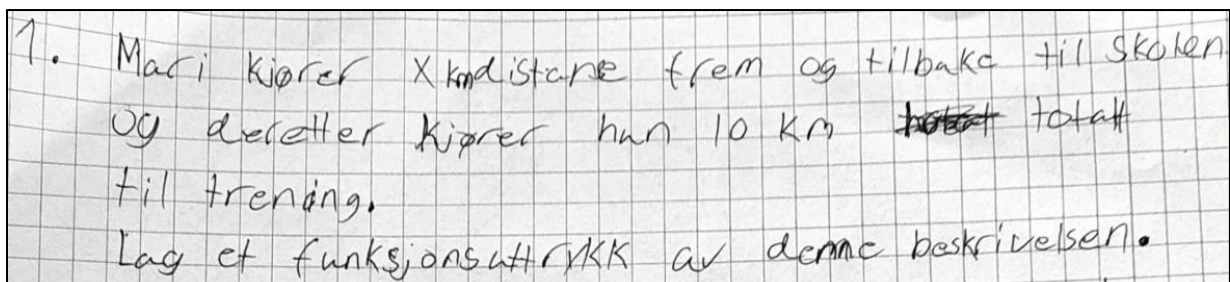 1. Mari kjører X km distane frem og tilbake til skolen
og deretter kjører hun 10 km totalt
til trening.
Lag et funksjonsuttrykk av denne beskrivelsen.